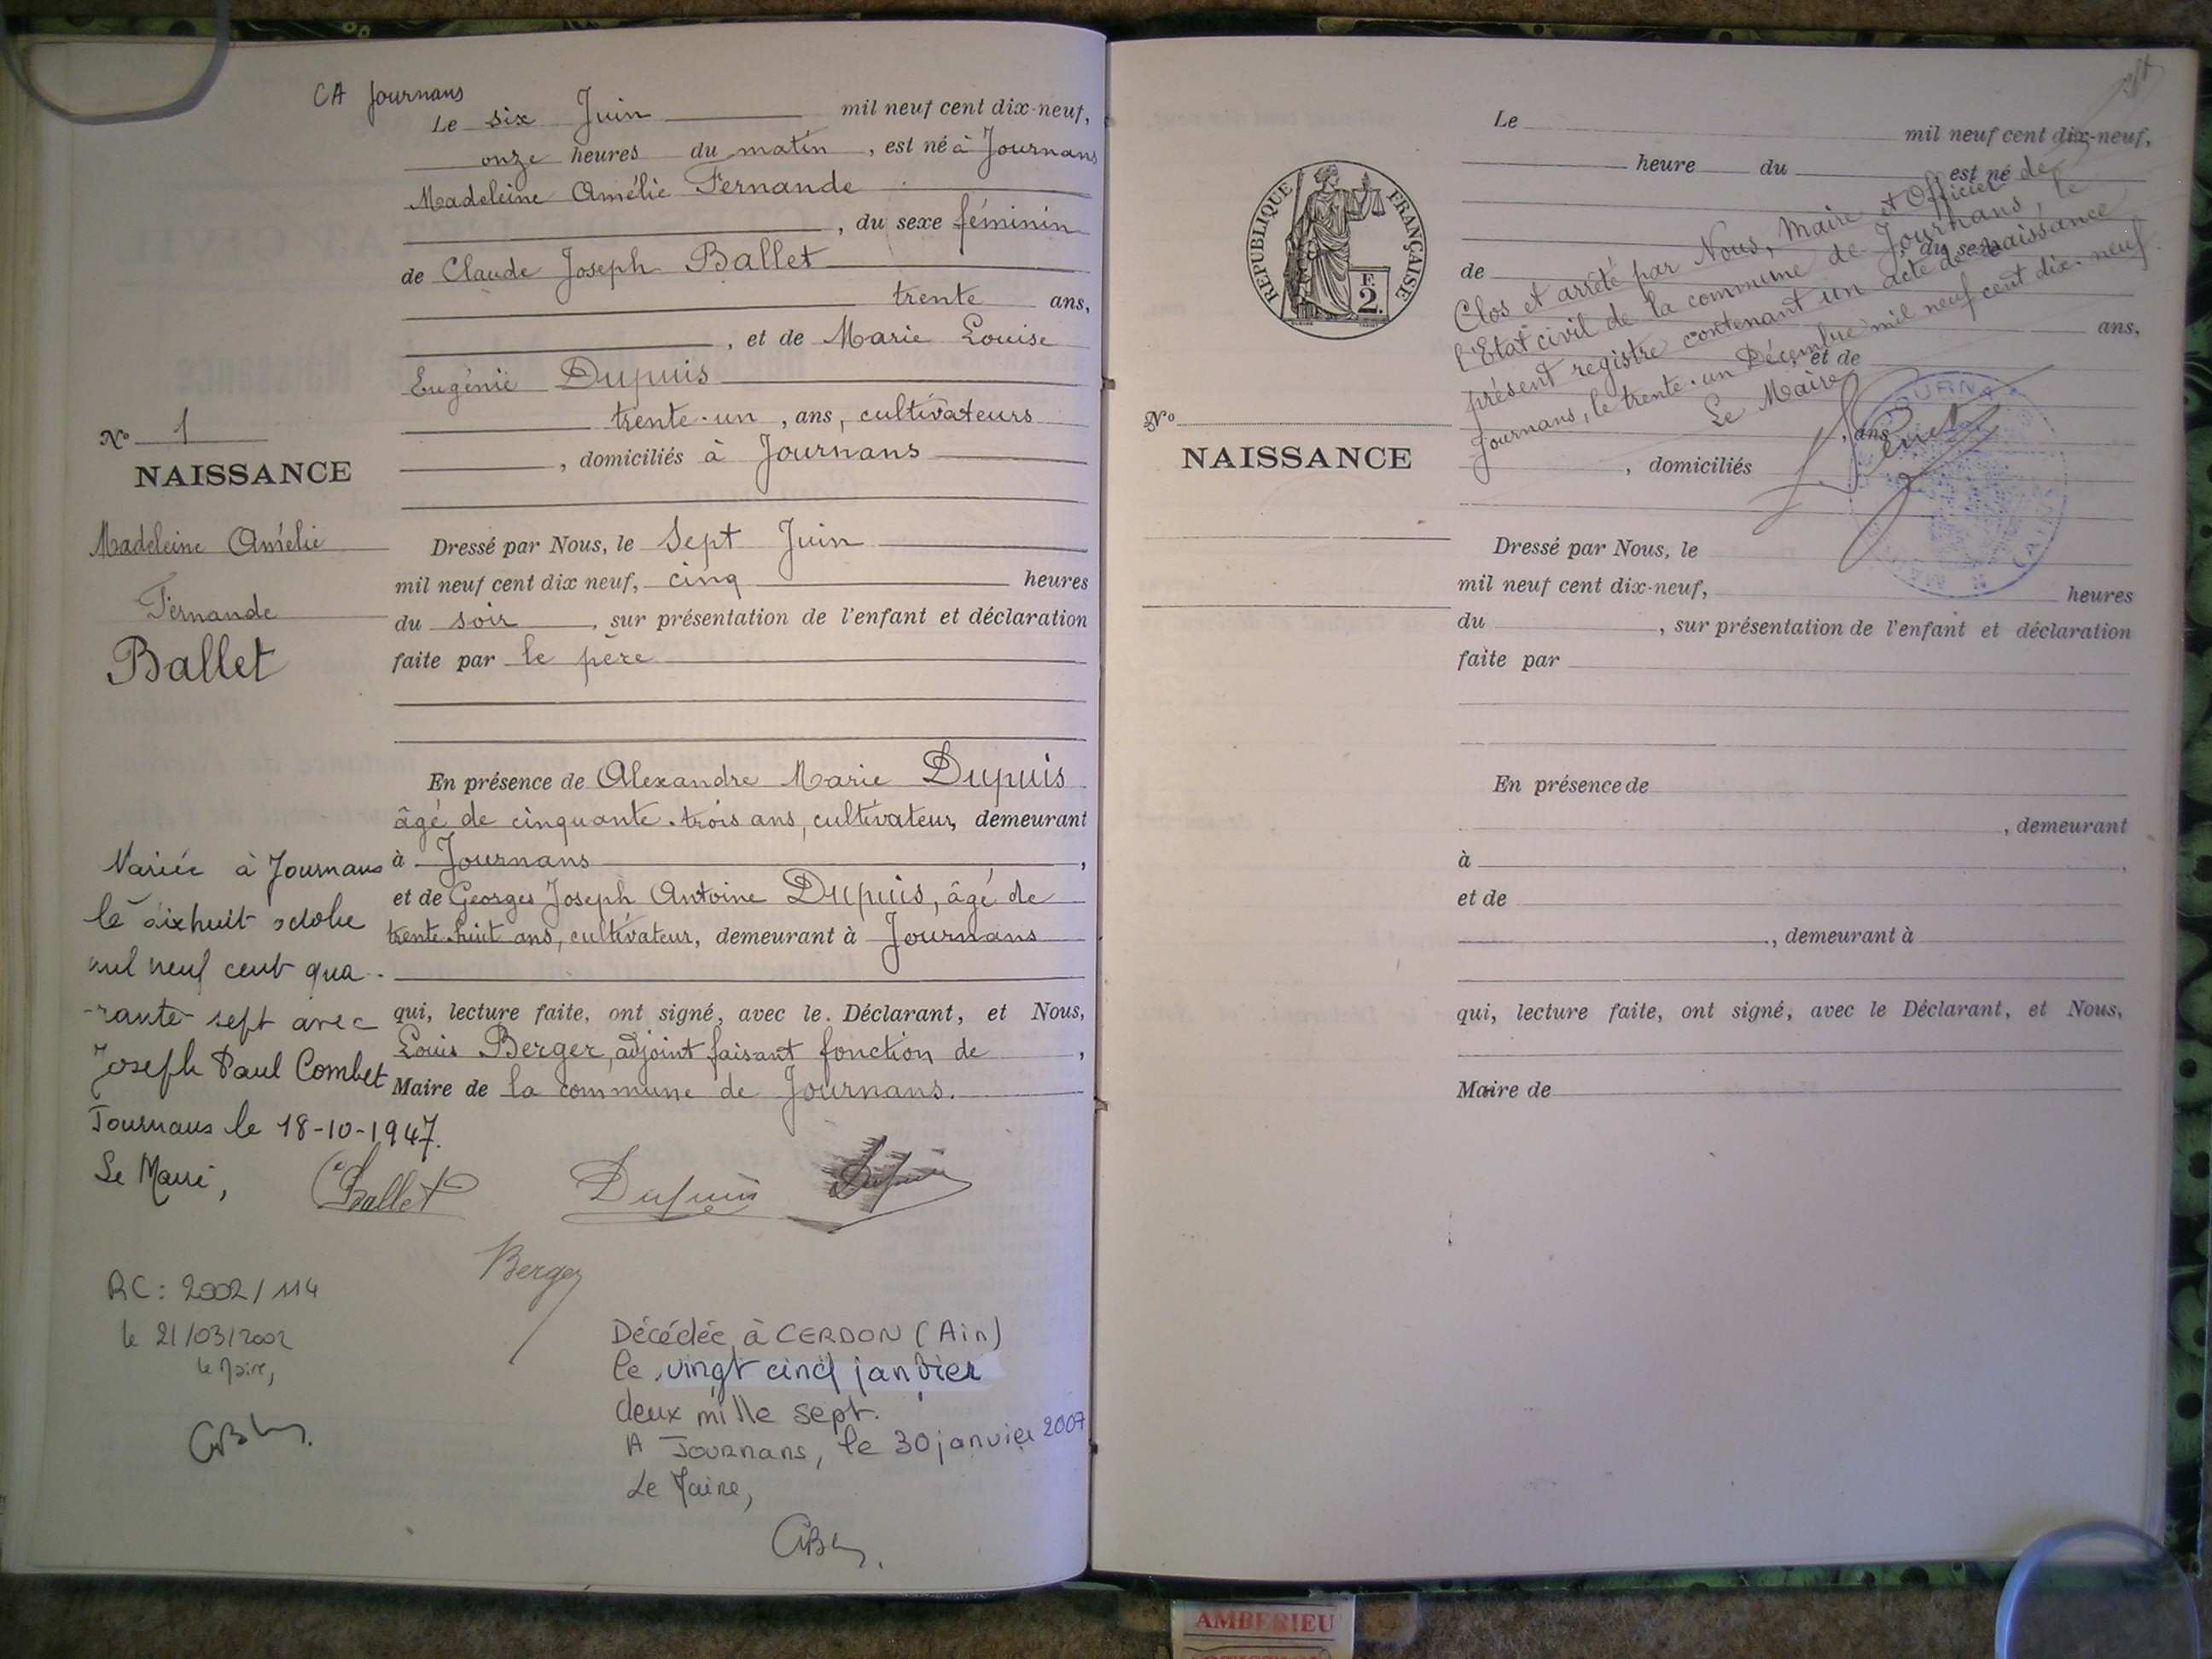 CA Journans
Le six Juin mil neuf cent dix-neuf,
onze heures du matin, est né à Journans
Madeleine Amélie Fernande
, du sexe féminin
de Claude Joseph Ballet
trente ans,
, et de Marie Louise
Eugénie Dupuis
trente-un, ans, cultivateurs
, domiciliés à Journans
N° 1
NAISSANCE
Madeleine Amélie
Fernande
Ballet
Dressé par Nous, le Sept Juin
mil neuf cent dix neuf, cinq heures
du soir, sur présentation de l'enfant et déclaration
faite par le père
En présence de Alexandre Marie Dupuis
âgé de cinquante-trois ans, cultivateur, demeurant
à Journans,
et de Georges Joseph Antoine Dupuis, âgé de
trente-huit ans, cultivateur, demeurant à Journans
qui, lecture faite, ont signé, avec le Déclarant, et Nous,
Louis Berger, adjoint faisant fonction de,
Maire de la commune de Journans.
Mariée à Journans
le dixhuit octobre
mil neuf cent qua-
-rante sept avec
Joseph Paul Combet
Journans le 18-10-1947.
Le Maire,
CBallet
Dupuis
Dupuis
Berger
RC: 2002/114
le 21/03/2002
le Maire,
Décédée à CERDON (Ain)
le vingt cinq janvier
deux mille sept.
A Journans, le 30 janvier 2007
Le Maire,
Le mil neuf cent dix-neuf,
heure du est né
du sexe
de
ans,
et de
, ans
, domiciliés
Clos et arrêté par Nous, Maire et Officier de
l'Etat civil de la commune de Journans, le
présent registre contenant un acte de naissance
Journans, le trente-un Décembre mil neuf cent dix-neuf.
Le Maire
RÉPUBLIQUE FRANÇAISE
F.
2.
N°
NAISSANCE
Dressé par Nous, le
mil neuf cent dix-neuf, heures
du , sur présentation de l'enfant et déclaration
faite par
En présence de
, demeurant
à ,
et de
, demeurant à
qui, lecture faite, ont signé, avec le Déclarant, et Nous,
Maire de
AMBERIEU